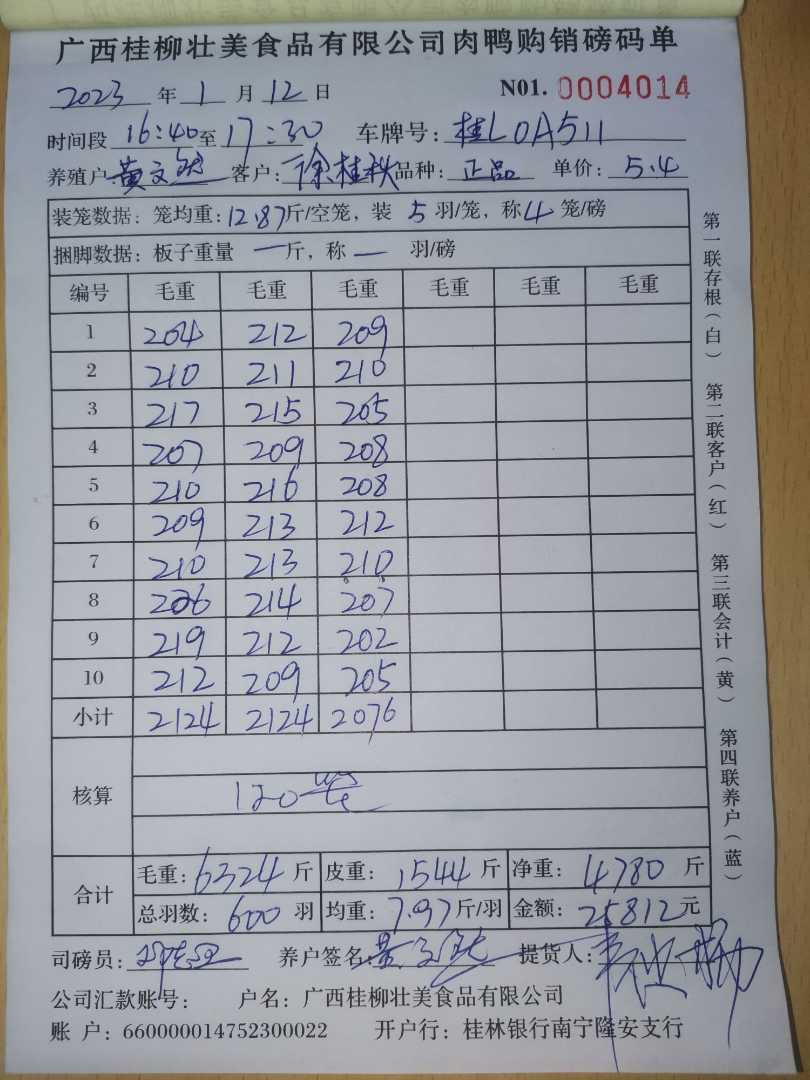 广西桂柳壮美食品有限公司肉鸭购销磅码单
2023 年 1 月 12 日 N01. 0004014
时间段 16:40 至 17:30 车牌号: 桂L0A511
养殖户 黄文 客户: 徐桂秋 品种: 正品 单价: 5.4
装笼数据: 笼均重: 12.87 斤/空笼, 装 5 羽/笼, 称 4 笼/磅
捆脚数据: 板子重量 一 斤, 称 一 羽/磅
编号 毛重 毛重 毛重 毛重 毛重 毛重
1 204 212 209
2 210 211 210
3 217 215 205
4 207 209 208
5 210 216 208
6 209 213 212
7 210 213 210
8 226 214 207
9 219 212 202
10 212 209 205
小计 2124 2124 2076
核算 120笼
合计 毛重: 6324 斤 皮重: 1544 斤 净重: 4780 斤
总羽数: 600 羽 均重: 7.97 斤/羽 金额: 25812 元
司磅员: 养户签名 黄文 提货人:
公司汇款账号: 户名: 广西桂柳壮美食品有限公司
账 户: 660000014752300022 开户行: 桂林银行南宁隆安支行
第一联存根(白) 第二联客户(红) 第三联会计(黄) 第四联养户(蓝)